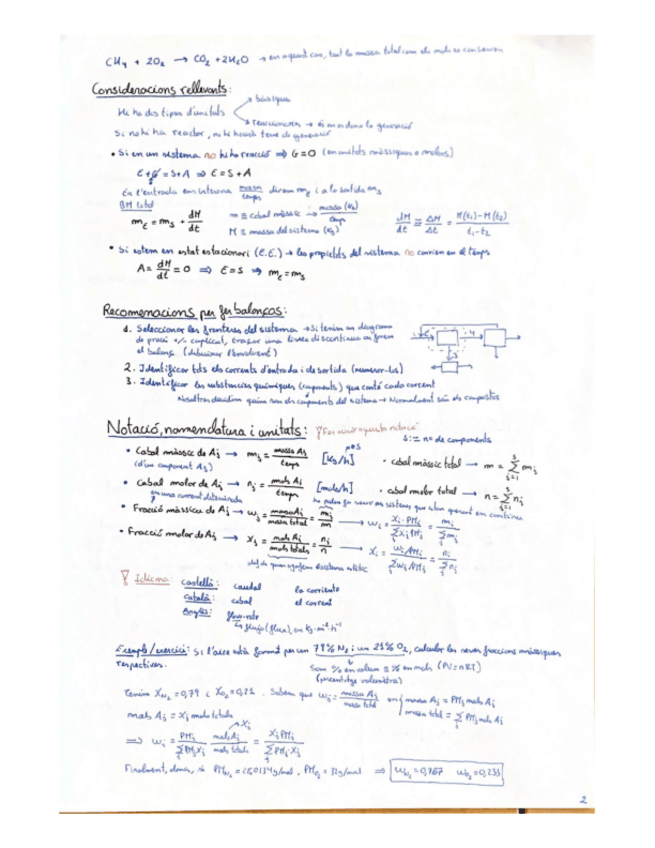 CH₄ + 2O₂ → CO₂ + 2H₂O → en aquest cas, tant la massa total com els mols es conserven
Consideracions rellevants:
Hi ha dos tipus d'unitats
bàsiques
reaccionen → és on es dona la generació
Si no hi ha reactor, no hi haurà terme de generació
• Si en un sistema no hi ha reacció ⟹ G=0 (en unitats màssiques o molars)
E + G = S + A ⟹ E = S + A
En l'entrada ens interessa massa/temps direm mE i a la sortida mS
BM total
mE = mS + dM/dt
m ≡ cabal màssic → massa (kg)/temps
M ≡ massa del sistema (kg)
dM/dt ≅ ΔM/Δt = M(t₁)-M(t₂)/t₁-t₂
• Si estem en estat estacionari (E.E.) → les propietats del sistema no canvien en el temps
A = dM/dt = 0 ⟹ E = S ⟹ mE = mS
Recomenacions per fer balanços:
1. Seleccionar les fronteres del sistema → Si tenim un diagrama
de procés +/- complicat, traçar una línea discontinua on farem
el balanç. (dibuixar l'envolvent)
2. Identificar tots els corrents d'entrada i de sortida (numerar-los)
3. Identificar les substàncies químiques (components) que conté cada corrent
Nosaltres decidim quins son els components del sistema → Normalment són els compostos
Notació, nomenclatura i unitats:
S := nº de components
• Cabal màssic de Aj → mj = massa Aj/temps [kg/h]
(d'un component Aj)
• cabal màssic total → m = Σ mj
• Cabal molar de Aj → nj = mols Aj/temps [mols/h]
en una corrent determinada
• cabal molar total → n = Σ nj
• Fracció màssica de Aj → wj = massa Aj/massa total = mj/m → wj = xj·PMj/Σxj PMj = mj/Σmj
• Fracció molar de Aj → xj = mols Aj/mols totals = nj/n → xj = wj/PMj/Σwj/PMj = nj/Σnj
! Idioma:
castellà: caudal la corriente
català: cabal el corrent
Anglès: flow-rate
↳ flujo (flux), en kg·m⁻²·h⁻¹
Exemple/exercici: Si l'aire està format per un 79% N₂ i un 21% O₂, calcular les seves fraccions màssiques
respectives.
Són % en volum ≡ % en mols (PV=nRT)
(percentatge volumètric)
Tenim xN₂ = 0,79 i xO₂ = 0,21. Sabem que wj = massa Aj/massa total on massa Aj = PMj mols Aj
massa total = Σ PMj mols Aj
mols Aj = xj mols totals
⟹ wj = PMj/ΣPMj xj mols Aj/mols totals = xj PMj/ΣPMj xj
Finalment, doncs, si PMN₂ = 28,0134 g/mol, PMO₂ = 32 g/mol ⟹ wN₂ = 0,767 wO₂ = 0,233
2